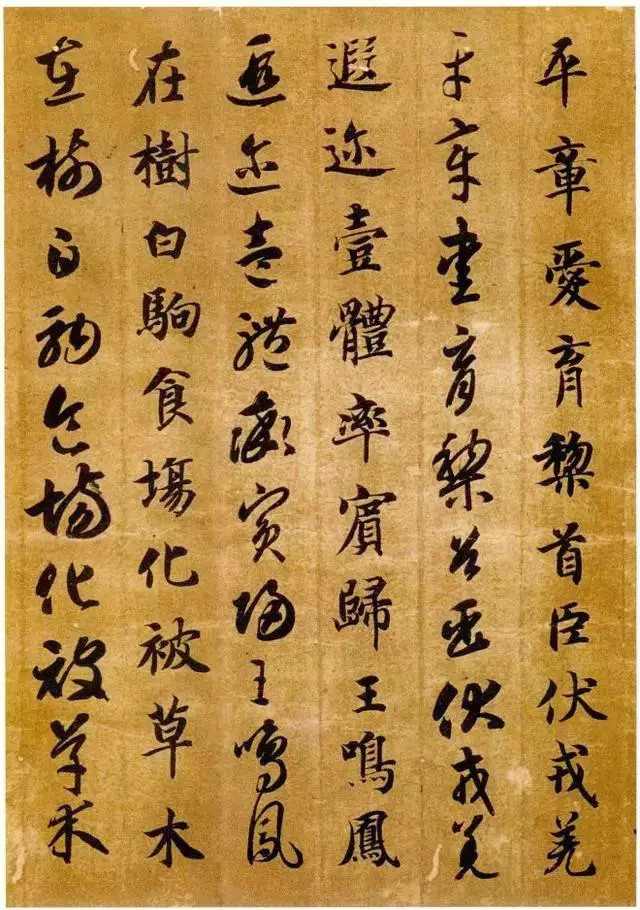 平章愛育黎首臣伏戎羌
平章愛育黎首臣伏戎羌
遐迩壹體率賓歸王鳴鳳
遐迩壹體率賓歸王鳴鳳
在樹白駒食場化被草木
在樹白駒食場化被草木